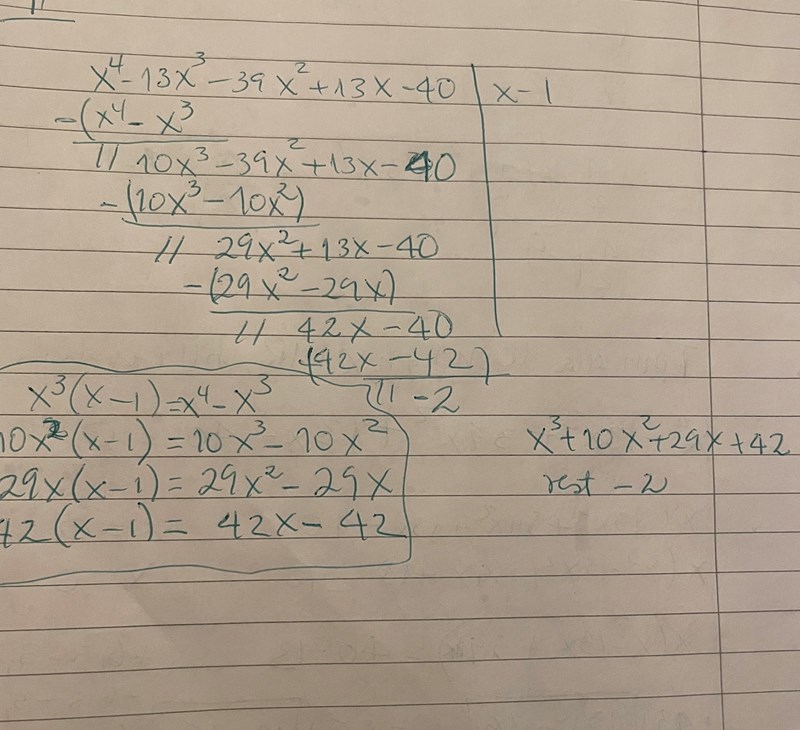 x⁴-13x³-39x²+13x-40 | x-1
-(x⁴-x³
// 10x³-39x²+13x-40
-(10x³-10x²)
// 29x²+13x-40
-(29x²-29x)
// 42x-40
(42x-42)
/// -2
x³(x-1)=x⁴-x³
10x²(x-1)=10x³-10x²
29x(x-1)=29x²-29x
42(x-1)=42x-42
x³+10x²+29x+42
rest -2